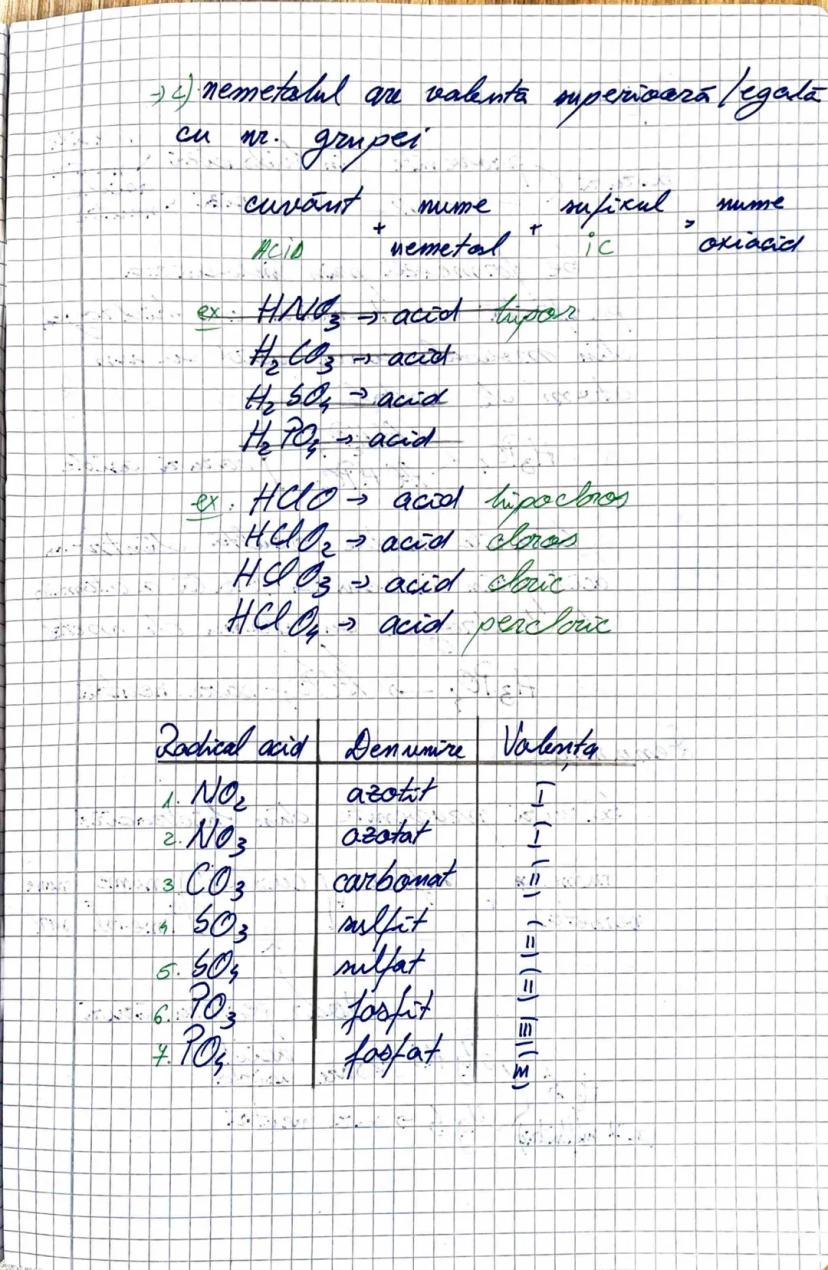 → c) nemetalul are valență superioară/egală
cu nr. grupei
cuvânt + nume + sufixul = nume
ACID nemetal ic oxiacid
ex HNO3 → acid hipor
H2CO3 → acid
H2SO4 → acid
H2PO4 → acid
ex. HClO → acid hipocloros
HClO2 → acid cloros
HClO3 → acid cloric
HClO4 → acid percloric
Radical acid | Denumire | Valența
1. NO2 azotit (I)
2. NO3 azotat (I)
3. CO3 carbonat (II)
4. SO3 sulfit (II)
5. SO4 sulfat (II)
6. PO3 fosfit (III)
7. PO4 fosfat (III)